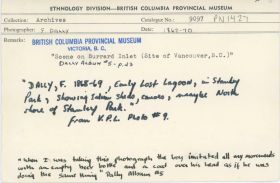 ETHNOLOGY DIVISION—BRITISH COLUMBIA PROVINCIAL MUSEUM
Collection: Archives Catalogue No.: 9097 PN 1427
Photographer: F. DALLY Date: 1868-70
Remarks: BRITISH COLUMBIA PROVINCIAL MUSEUM
VICTORIA, B.C.
"Scene on Burrard Inlet (Site of Vancouver, B.C.)"
DALLY ALBUM #5 - p.23
"DALLY, F. 1868-69, Early Lost Lagoon, in Stanley
Park, Showing Indian Shacks, canoes, maybe North
shore of Stanley Park."
From V.P.L. Photo #9.
"When I was taking this photograph the boy imitated all my movements
with an empty beer bottle and a coat over his head as if he was
doing the same thing" Dally Album #5